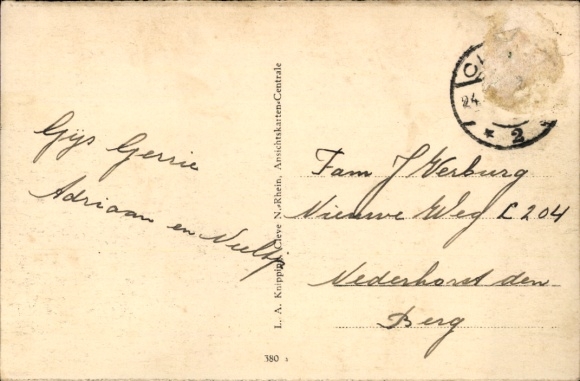 Gijs Gerrie
Adriaan en
L. A. Knipping, Cleve N.-Rhein, Ansichtskarten-Centrale
24.
* 2
Fam J Verburg
Nieuwe Weg L 204
Nederhorst den
Berg
380